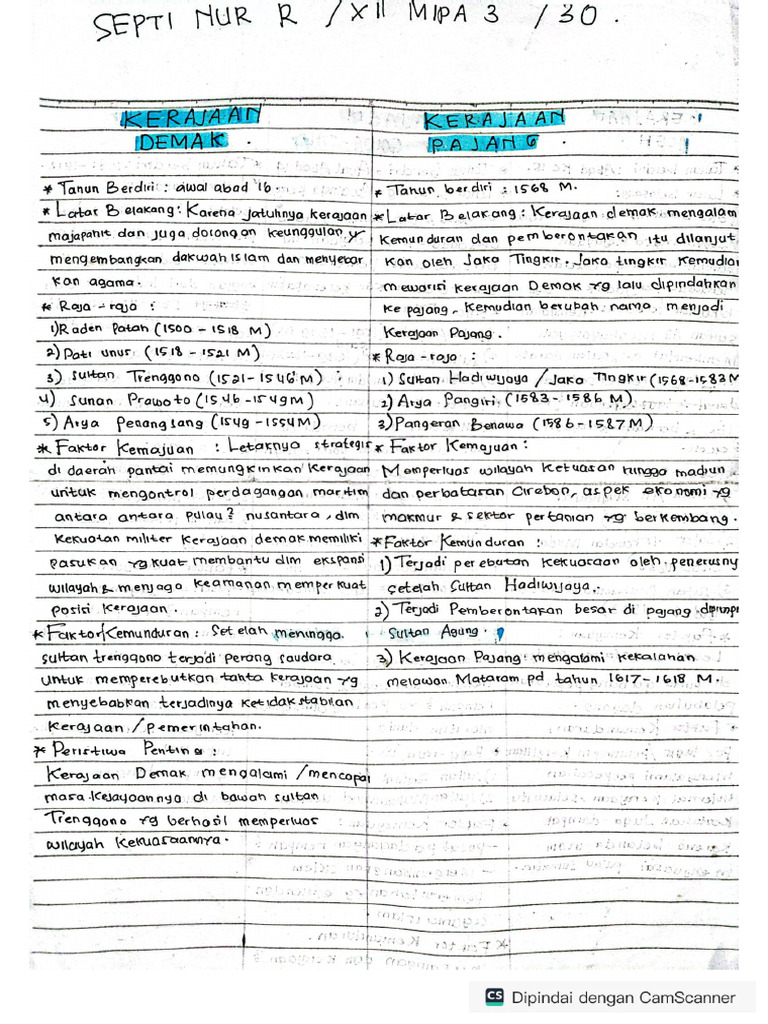 SEPTI NUR R / XII MIPA 3 / 30.
KERAJAAN
DEMAK.
* Tahun Berdiri : awal abad 16.
* Latar Belakang : Karena jatuhnya kerajaan
majapahit dan juga dorongan keunggulan yg
mengembangkan dakwah islam dan menyebar
kan agama.
* Raja-raja :
1) Raden Patah (1500 - 1518 M)
2) Pati unus (1518 - 1521 M)
3) Sultan Trenggono (1521 - 1546 M)
4) Sunan Prawoto (1546 - 1549 M)
5) Arya Penangsang (1549 - 1554 M)
* Faktor Kemajuan : Letaknya strategis
di daerah pantai memungkinkan Kerajaan
untuk mengontrol perdagangan maritim
antara antara pulau? nusantara, dlm
kekuatan militer kerajaan demak memiliki
pasukan yg kuat membantu dlm ekspansi
wilayah & menjaga keamanan memperkuat
posisi kerajaan.
* Faktor Kemunduran : Setelah meningga
sultan trenggono terjadi perang saudara
untuk memperebutkan tahta kerajaan yg
menyebabkan terjadinya ketidakstabilan
kerajaan / pemerintahan.
* Peristiwa Penting :
Kerajaan Demak mengalami / mencapai
masa kejayaannya di bawah sultan
Trenggono yg berhasil memperluas
wilayah kekuasaannya.
KERAJAAN
PAJANG
* Tahun berdiri : 1568 M.
* Latar Belakang : Kerajaan demak mengalam
kemunduran dan pemberontakan itu dilanjut
kan oleh Jaka Tingkir. Jaka tingkir kemudian
mewarisi kerajaan Demak yg lalu dipindahkan
ke pajang, kemudian berubah nama menjadi
Kerajaan Pajang.
* Raja-raja :
1) Sultan Hadiwijaya / Jaka Tingkir (1568 - 1583 M
2) Arya Pangiri (1583 - 1586 M)
3) Pangeran Benawa (1586 - 1587 M)
* Faktor Kemajuan :
Memperluas wilayah kekuasan hingga madiun
dan perbatasan Cirebon, aspek ekonomi yg
makmur & sektor pertanian yg berkembang.
* Faktor Kemunduran :
1) Terjadi perebutan kekuasaan oleh penerusny
setelah Sultan Hadiwijaya.
2) Terjadi Pemberontakan besar di pajang
Sultan Agung.
3) Kerajaan Pajang mengalami kekalahan
melawan Mataram pd tahun 1617 - 1618 M.
CS Dipindai dengan CamScanner